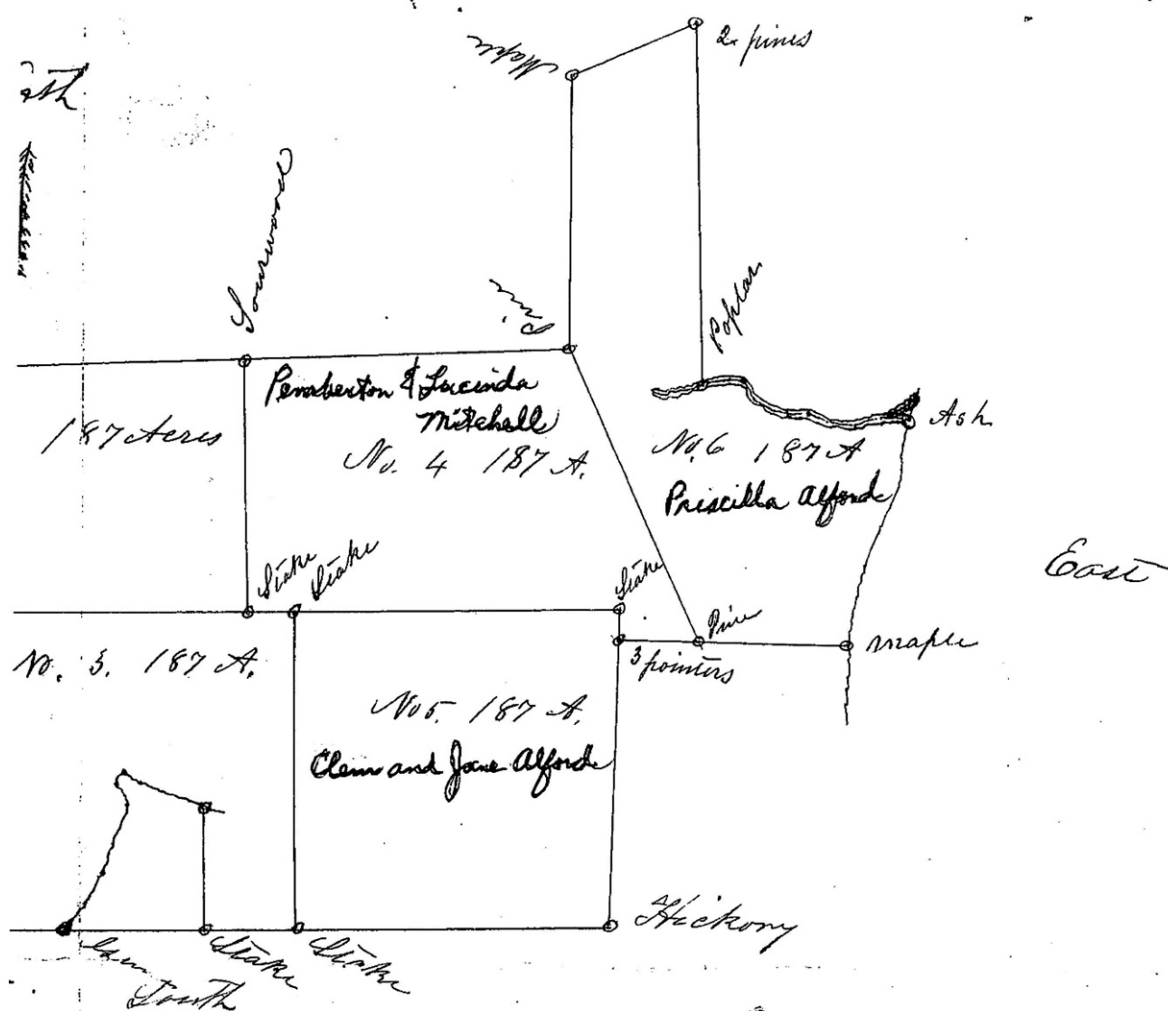 2 pines
Maple
Sourwood
Pine
Poplar
Pemberton & Lucinda
Mitchell
No. 4 187 A.
187 Acres
No. 6 187 A
Priscilla Alford
Ash
East
Stake
Stake
Stake
Pine
maple
3 pointers
No. 3. 187 A.
No 5. 187 A.
Clem and Jane Alford
Hickory
Gum
Stake
Stake
South